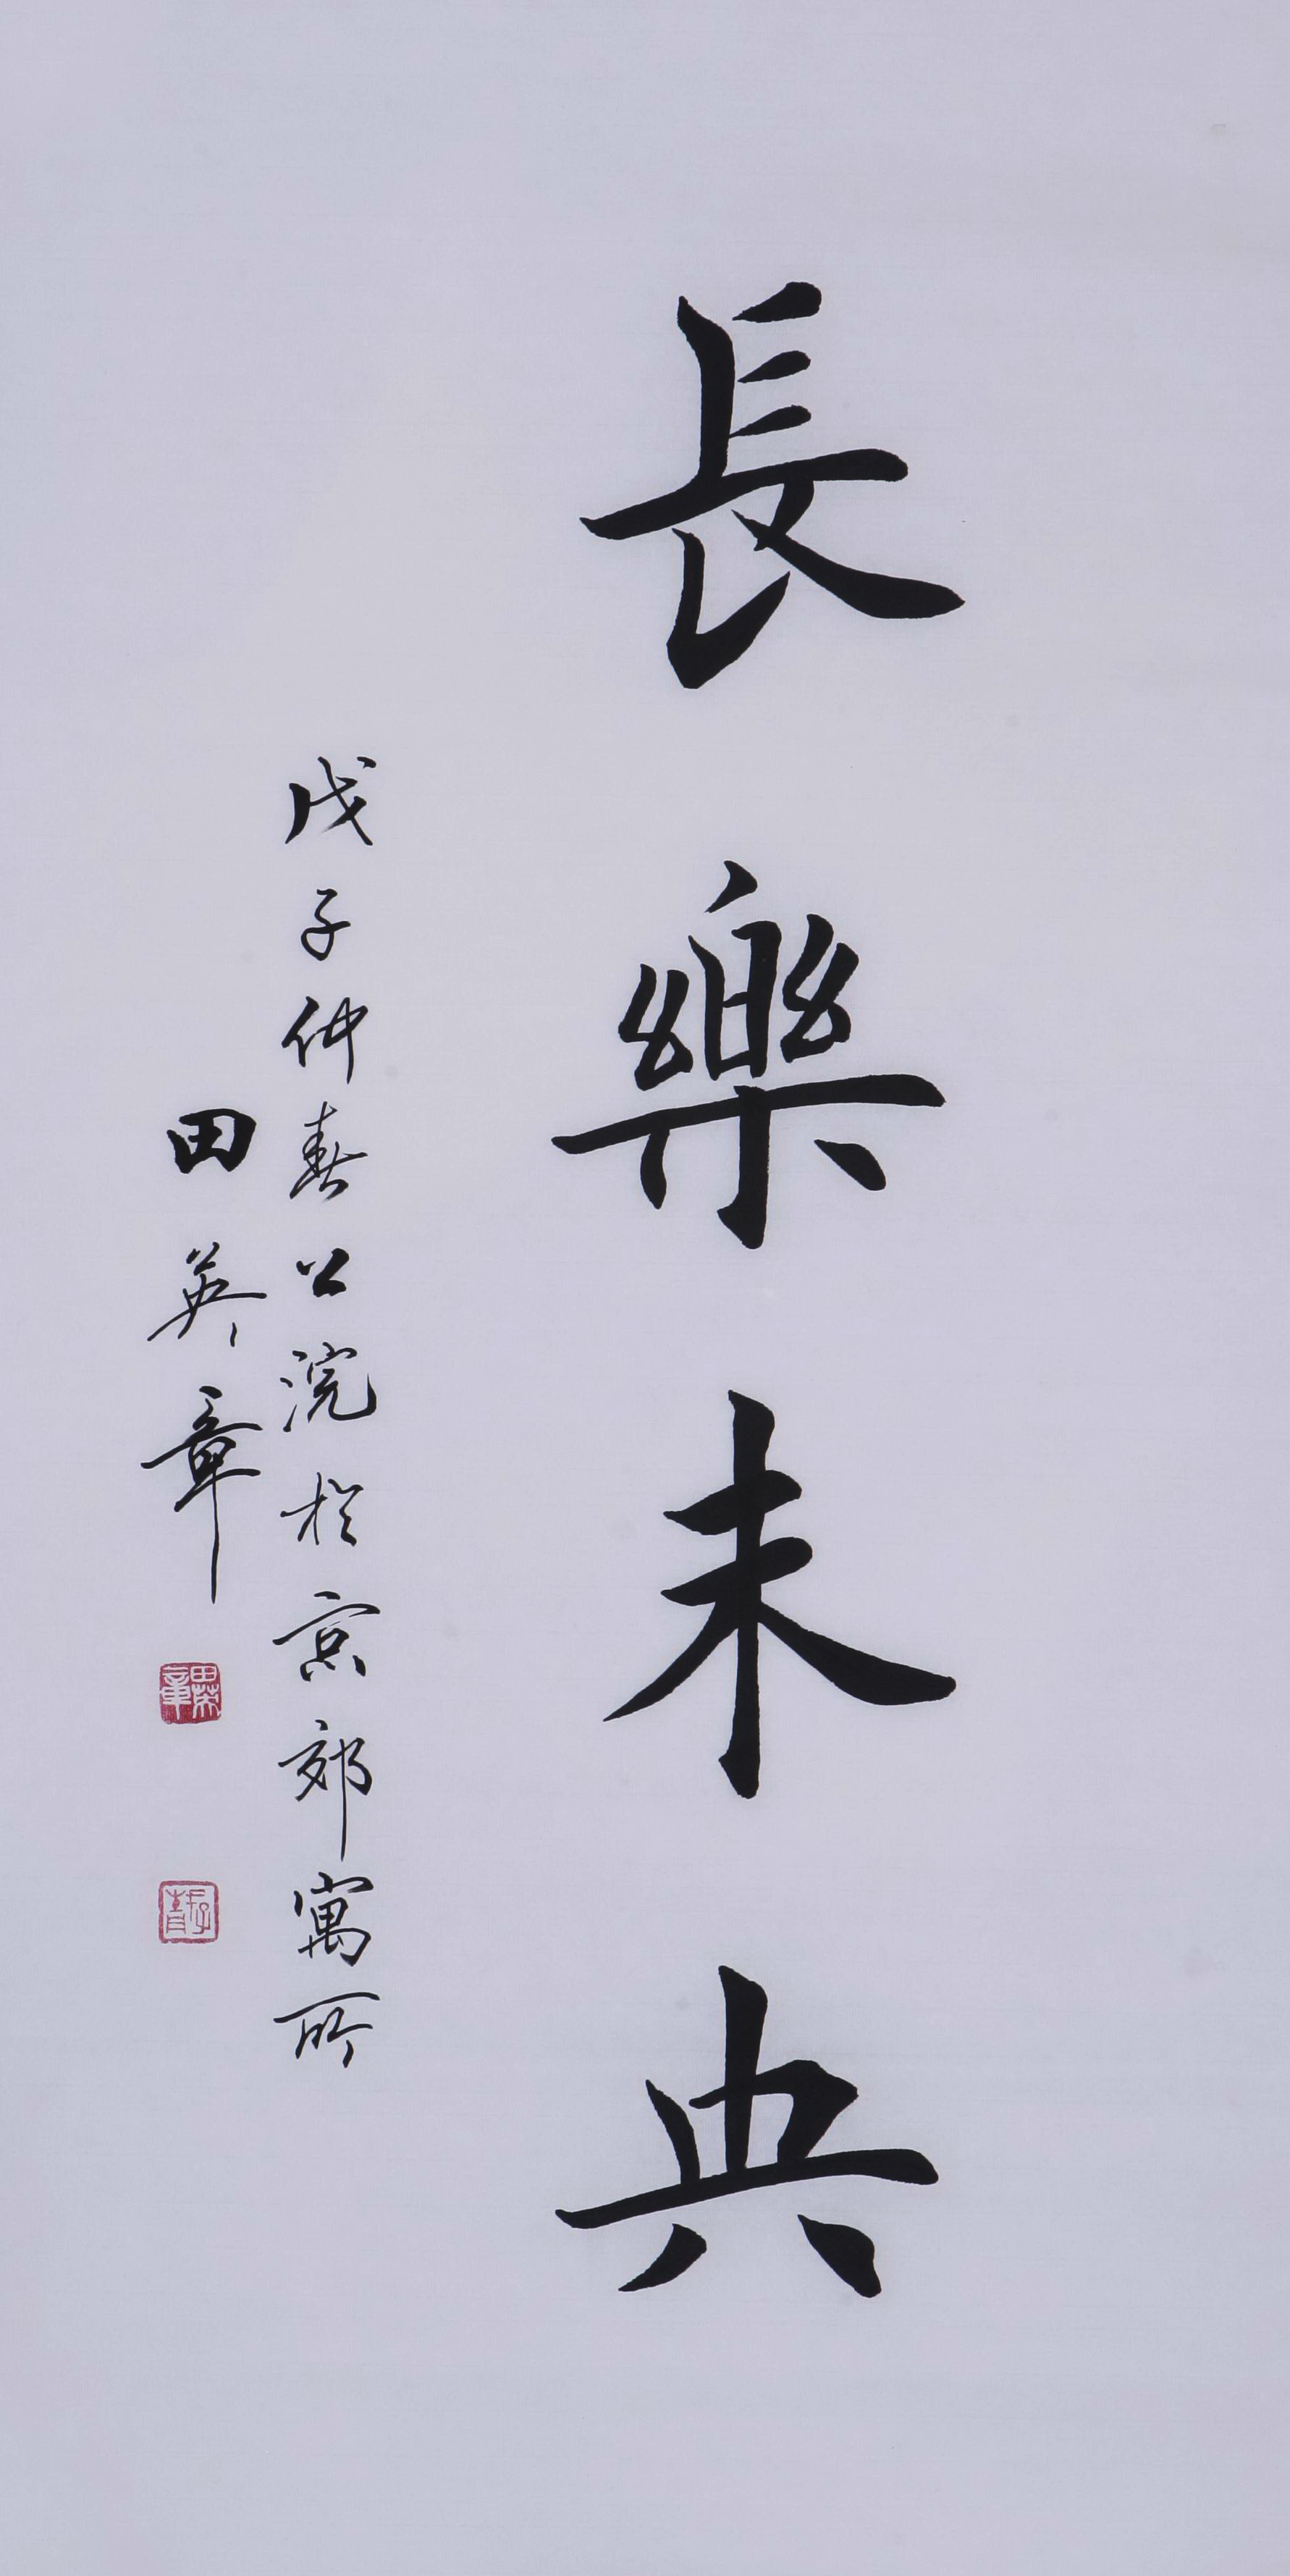 長樂未央
戊子仲春上浣於京郊寓所
田英章
田英章